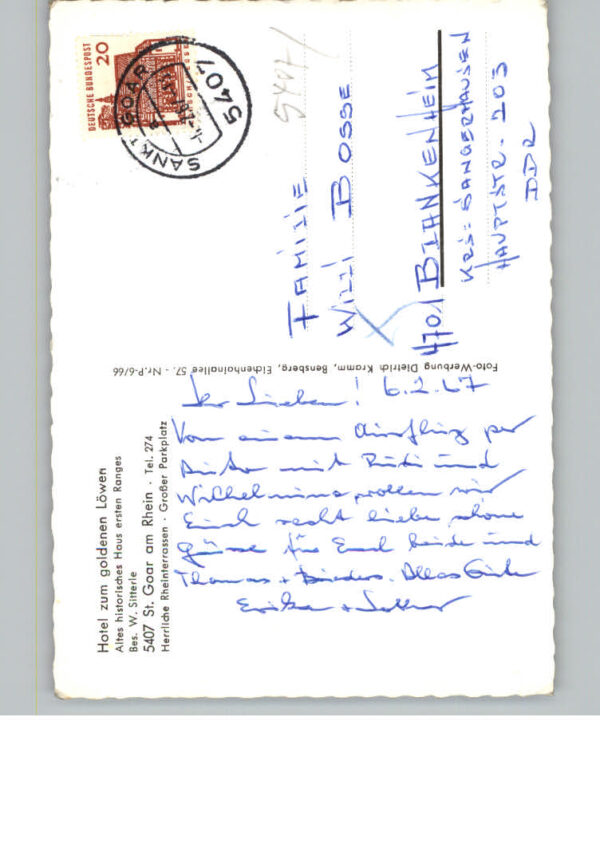 Hotel zum goldenen Löwen
Altes historisches Haus ersten Ranges
Bes. W. Sitterle
5407 St. Goar am Rhein · Tel. 274
Herrliche Rheinterrassen · Großer Parkplatz
Ihr Lieben! 6.2.67
Von einem Ausflug per
Auto mit Rudi und
Wilhelmina wollen wir
Euch recht liebe schöne
Grüsse für Euch beide und
Thomas +
Alles Gute
Erika + Lothar
Foto-Werbung Dietrich Kramm, Bensberg, Eichenhainallee 57. - Nr.P-6/66
DEUTSCHE BUNDESPOST
20
SANKT GOAR
5407
5407
FAMILIE
WILLI BOSSE
4701 BLANKENHEIM
KRS: SANGERHAUSEN
HAUPTSTR. 203
DDR